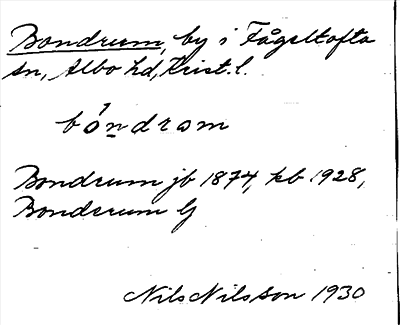 Bondrum, by i Fågeltofta
sn, Albo hd, Krist. l.
bón̲drom
Bondrum jb 1874, kb 1928,
Bonderum Lf
Nils Nilsson 1930